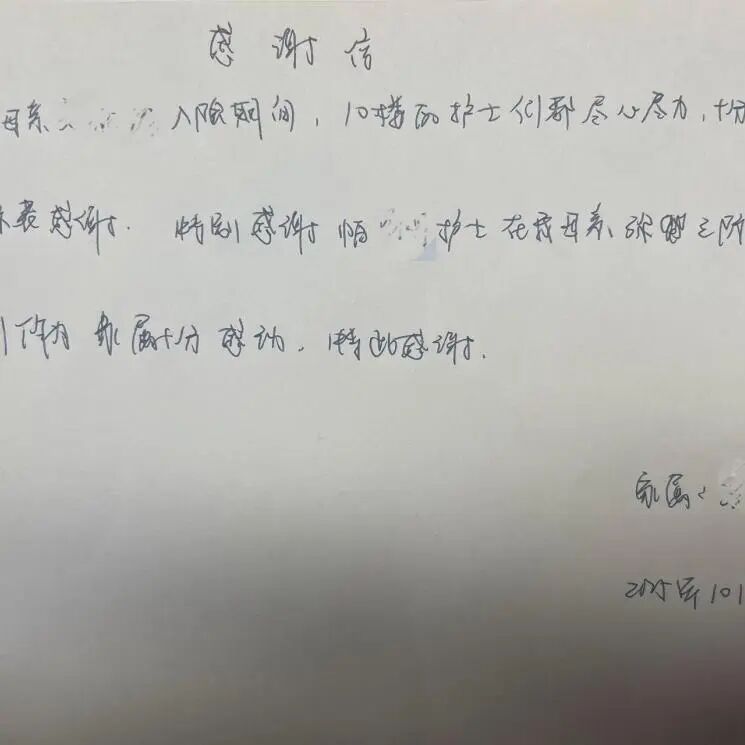 感谢信
母亲 入院期间，10楼的护士们都尽心尽力，十分
感谢. 特别感谢 护士在我母亲弥留之际
作为家属十分感动，特此感谢.
家属：
2025年10